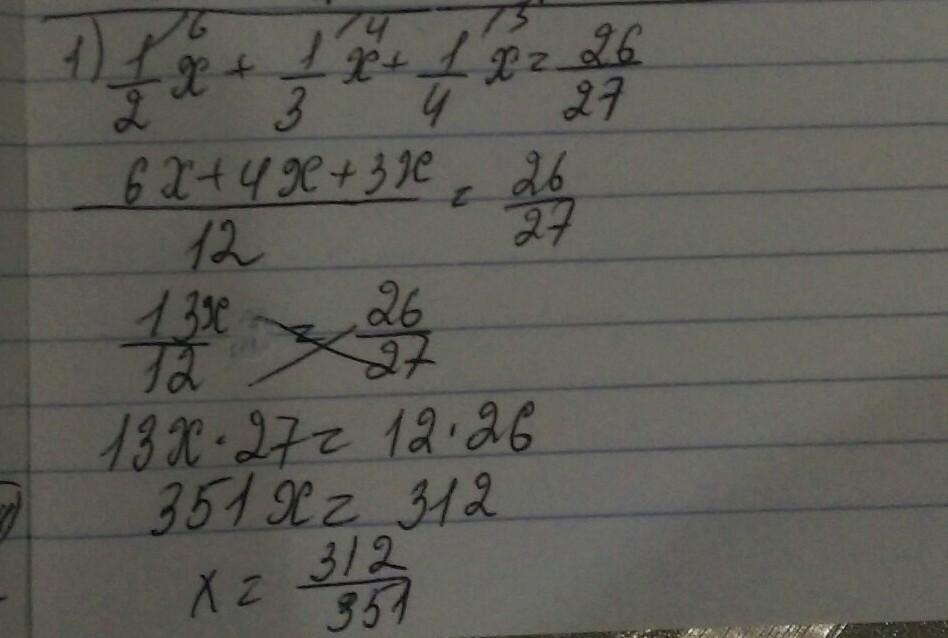 1) 1/2 x /6 + 1/3 x /4 + 1/4 x /3 = 26/27
6x+4x+3x/12 = 26/27
13x/12 = 26/27
13x·27 = 12·26
351x = 312
x = 312/351